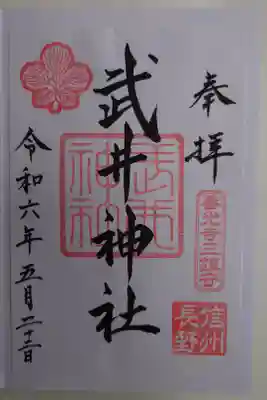 奉拝
善光寺三鎮守
信州
長野
武井神社
武井
神社
令和六年五月